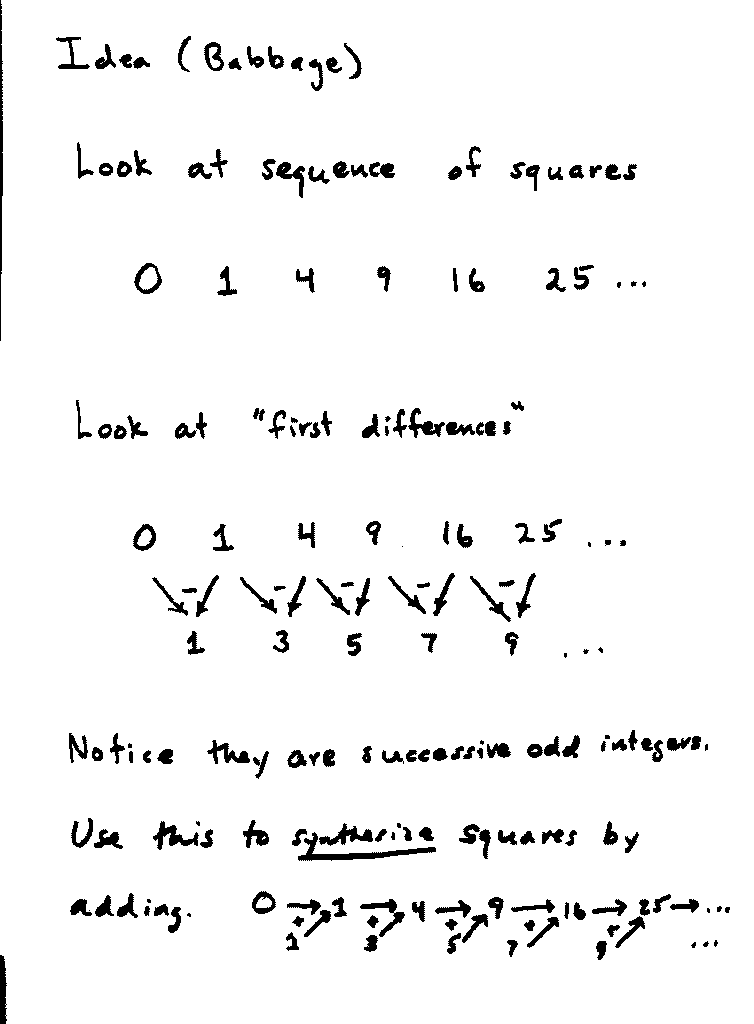 Idea (Babbage)
Look at sequence of squares
0 1 4 9 16 25 ...
Look at "first differences"
0 1 4 9 16 25 ...
- - - - -
1 3 5 7 9 ...
Notice they are successive odd integers.
Use this to synthesize squares by
adding. 0 → 1 → 4 → 9 → 16 → 25 → ...
+ + + + +
1 3 5 7 9 ...